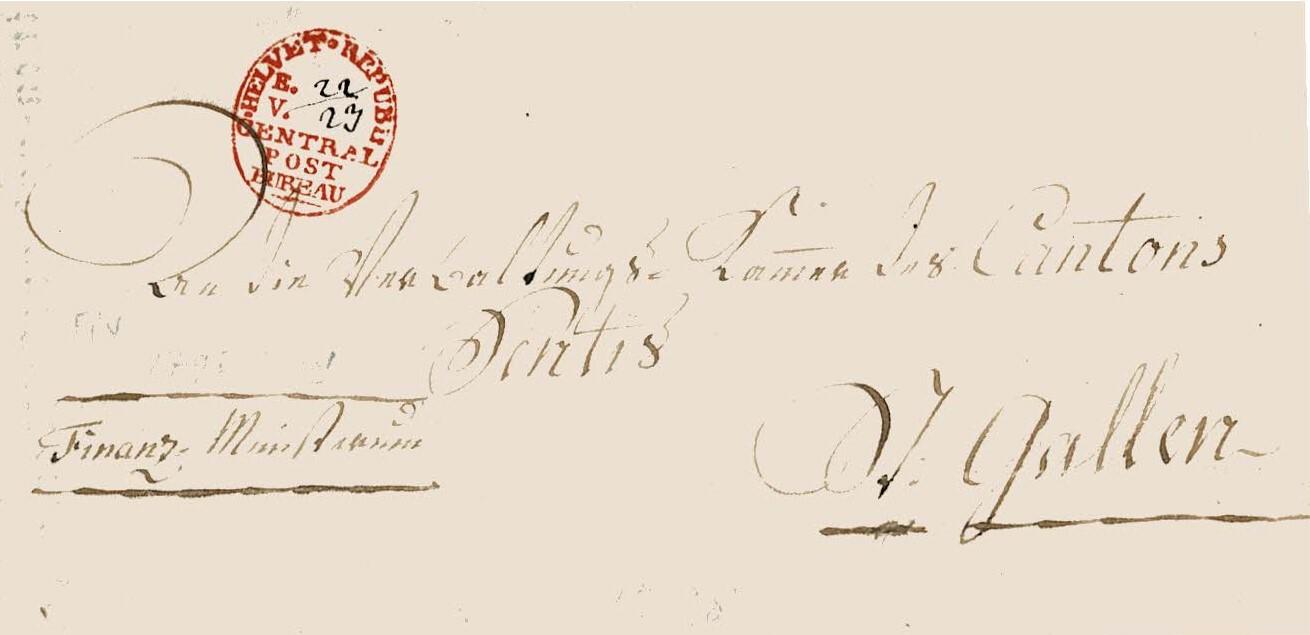 HELVET · REPUBL
E. 22
V. 23
CENTRAL
POST
BUREAU
An die Verwaltungs- Kam̄er des Cantons
Sentis
Finanz- Ministerium
St. Gallen